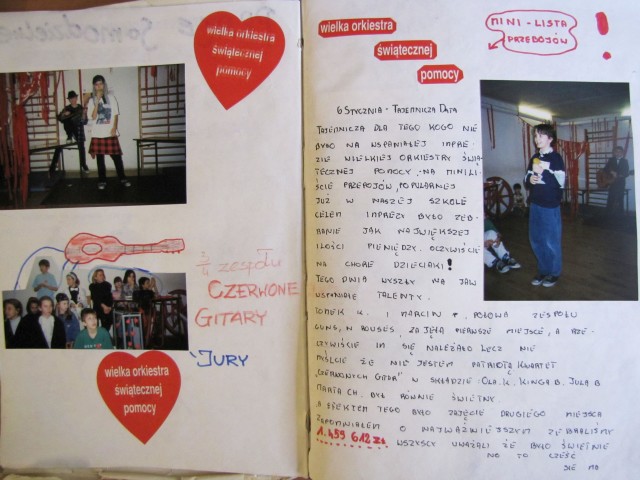 wielka orkiestra
świątecznej
pomocy
2/4 zespołu
CZERWONE
GITARY
JURY
wielka orkiestra
świątecznej
pomocy
wielka orkiestra
świątecznej
pomocy
MINI - LISTA
PRZEBOJÓW
!
6 STYCZNIA - TAJEMNICZA DATA
TAJEMNICZA DLA TEGO KOGO NIE
BYŁO NA WSPANIAŁEJ IMPRE-
ZIE WIELKIEJ ORKIESTRY ŚWIĄ-
TECZNEJ POMOCY, NA MINI LI-
ŚCIE PRZEBOJÓW, POPULARNEJ
JUŻ W NASZEJ SZKOLE
CELEM IMPREZY BYŁO ZEB-
RANIE JAK NAJWIĘKSZEJ
ILOŚCI PIENIĘDZY. OCZYWIŚCIE
NA CHORE DZIECIAKI!
TEGO DNIA WYSZŁY NA JAW
WSPANIAŁE TALENTY.
TOMEK K. I MARCIN P, POŁOWA ZESPOŁU
GUNS, N ROUSES, ZAJĘŁA PIERWSZE MIEJSCE, A
IM SIĘ NALEŻAŁO LECZ NIE
MYŚLCIE ŻE NIE JESTEM PATRIOTĄ KWARTET
"CZERWONYCH GITAR" W SKŁADZIE OLA. K. KINGA B. JULA B
MARTA CH. BYŁ RÓWNIE ŚWIETNY.
A EFEKTEM TEGO BYŁO ZAJĘCIE DRUGIEGO MIEJSCA
ZAPOMNIAŁEM O NAJWAŻNIEJSZYM ZEBRALIŚMY
1.459 612 ZŁ WSZYSCY UWAŻALI ŻE BYŁO ŚWIETNIE
NO TO CZEŚĆ